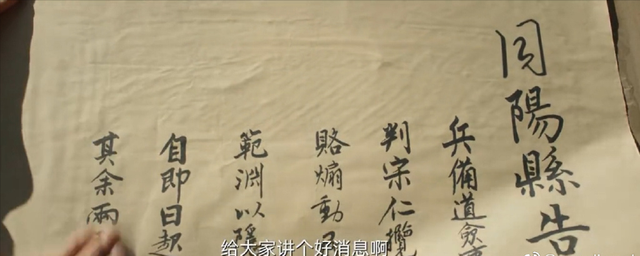 同陽縣告
兵備道僉
判宗仁攬
賂煽動
範淵以
自即日起
其余兩
给大家讲个好消息啊